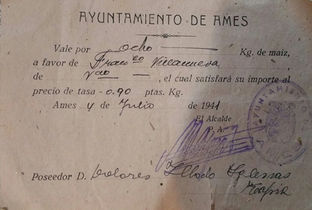 AYUNTAMIENTO DE AMES
Vale por Ocho Kg. de maiz,
a favor de Franco Villanueva
de, el cual satisfará su importe al
precio de tasa 0.90 ptas. Kg.
Ames 4 de Julio de 1941
El Alcalde
P. A.
AYUNTAMIENTO
Poseedor D. Dolores Iglesias